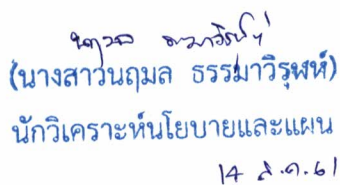 นฤมล ธรรมาวิรุฬห์
(นางสาวนฤมล ธรรมาวิรุฬห์)
นักวิเคราะห์นโยบายและแผน
14 ส.ค. 61